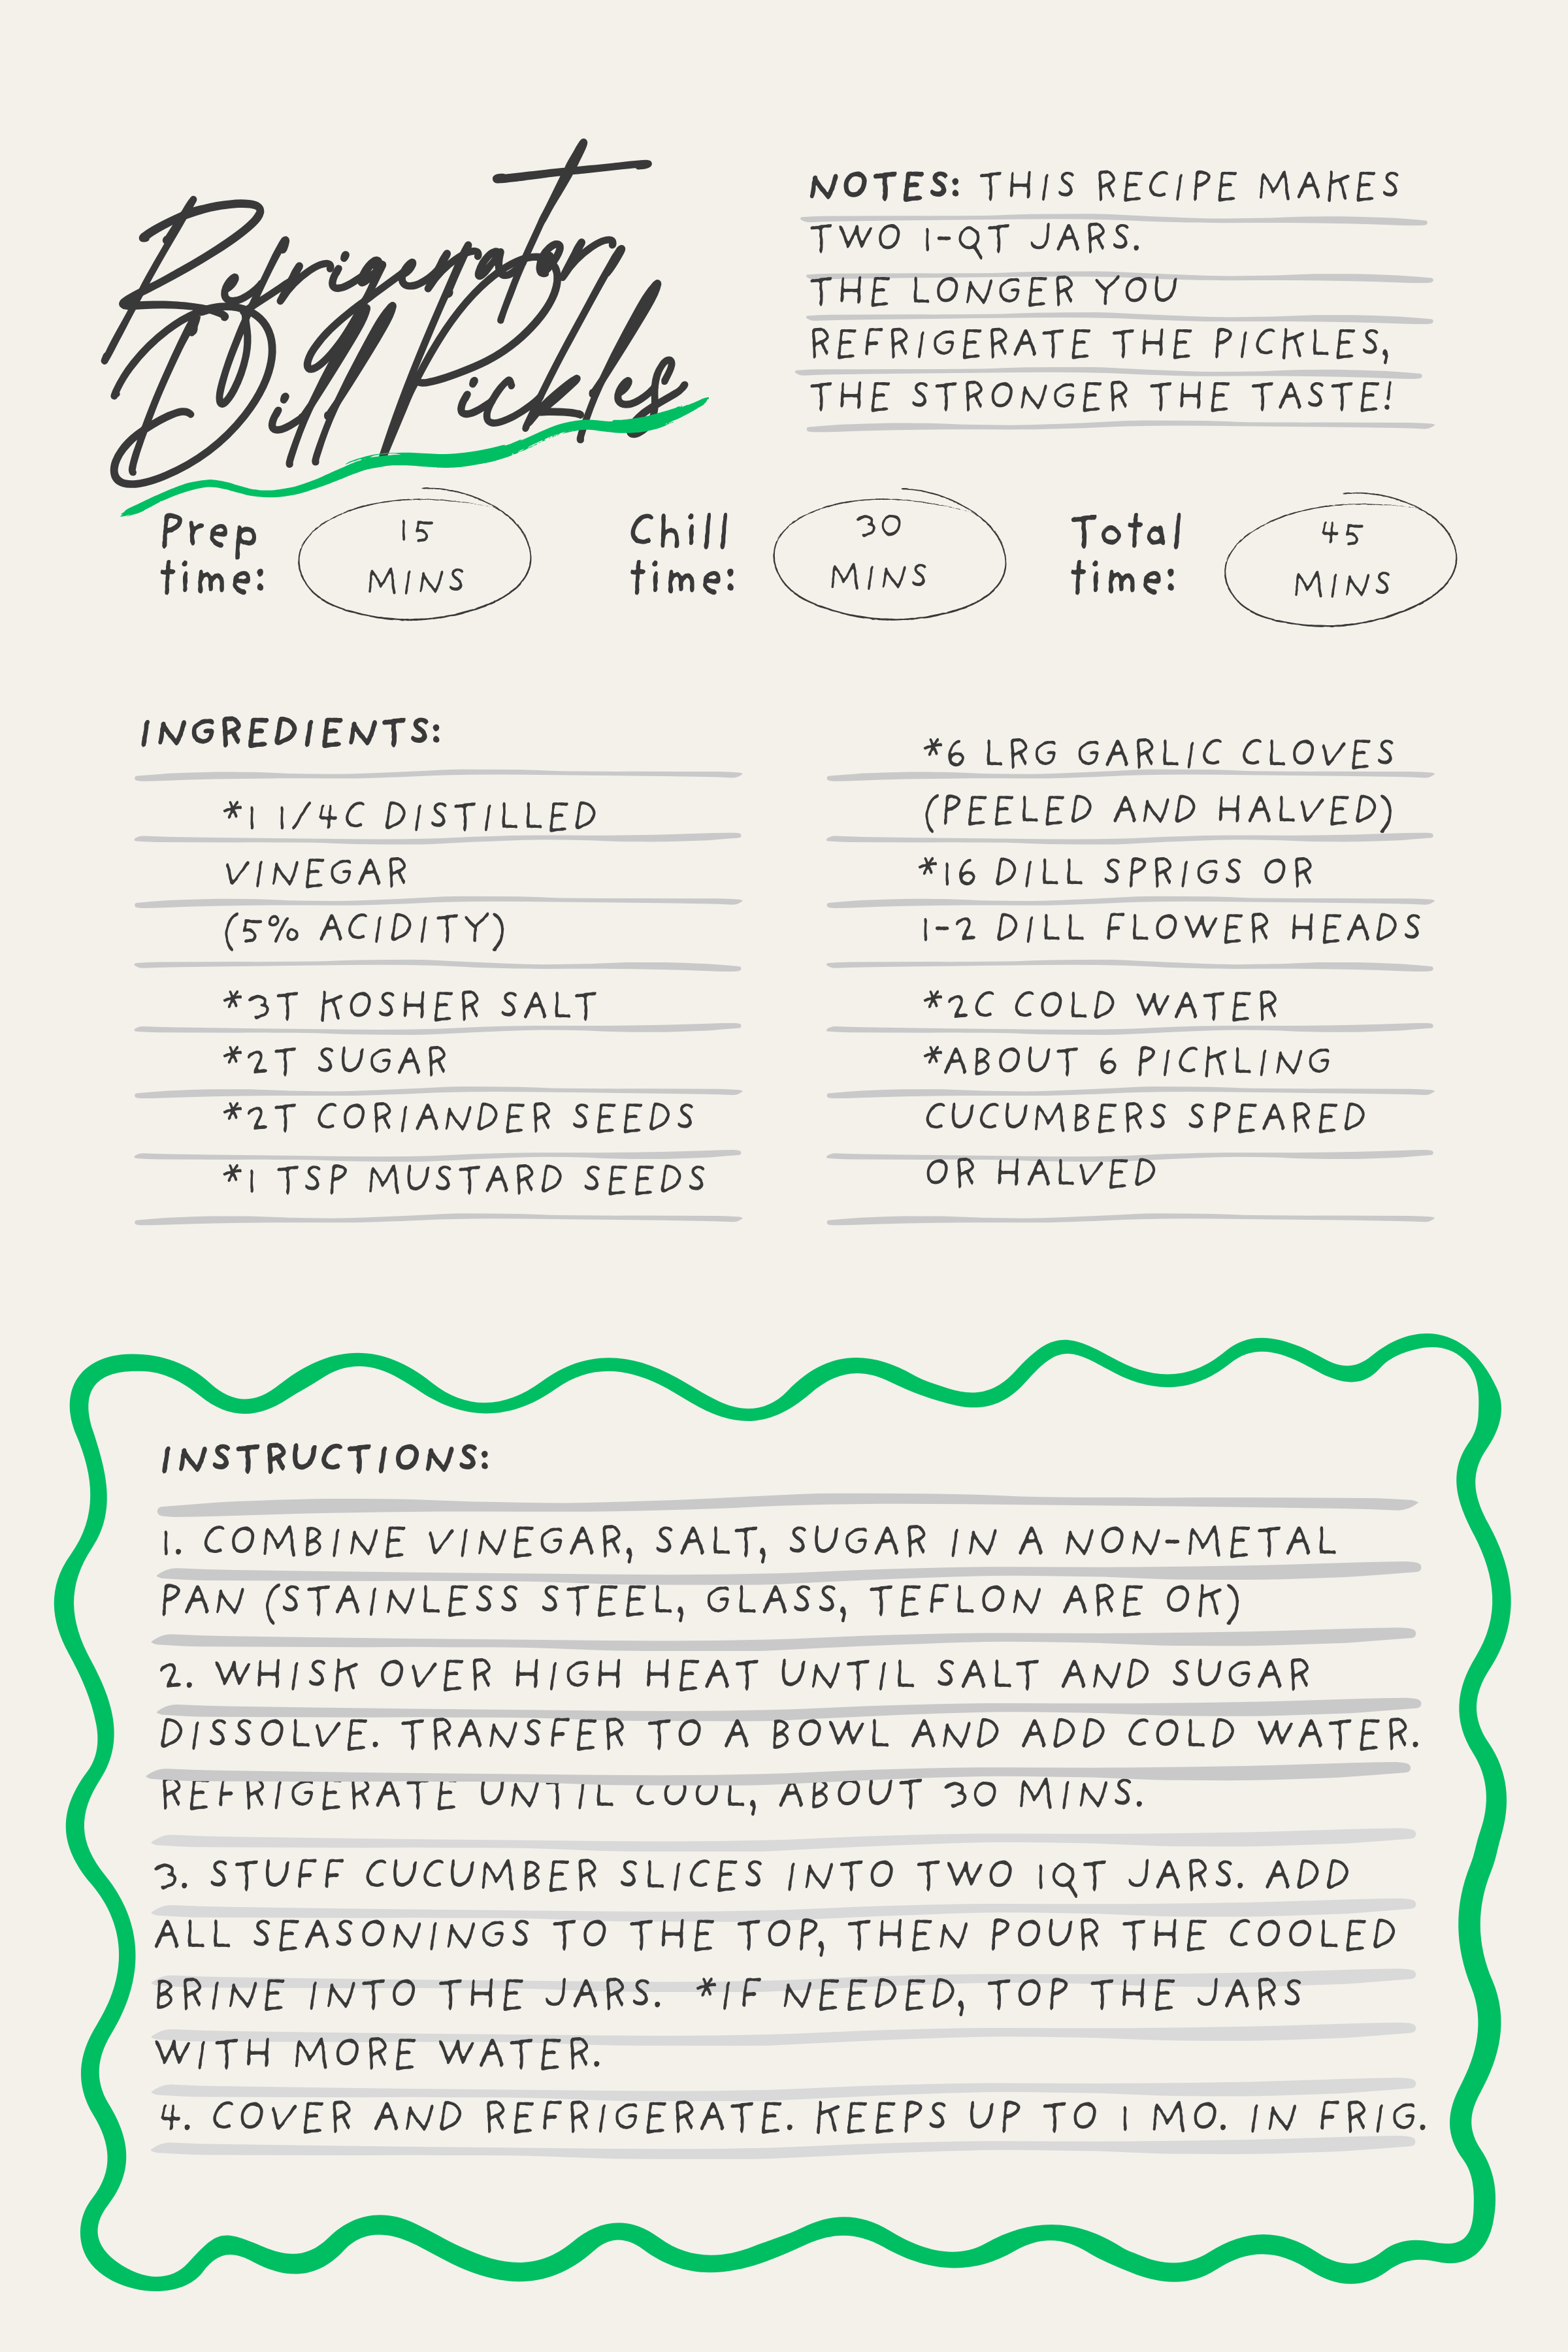 Refrigerator
Dill Pickles
NOTES: THIS RECIPE MAKES
TWO 1-QT JARS.
THE LONGER YOU
REFRIGERATE THE PICKLES,
THE STRONGER THE TASTE!
Prep time: 15 MINS
Chill time: 30 MINS
Total time: 45 MINS
INGREDIENTS:
*1 1/4C DISTILLED
VINEGAR
(5% ACIDITY)
*3T KOSHER SALT
*2T SUGAR
*2T CORIANDER SEEDS
*1 TSP MUSTARD SEEDS
*6 LRG GARLIC CLOVES
(PEELED AND HALVED)
*16 DILL SPRIGS OR
1-2 DILL FLOWER HEADS
*2C COLD WATER
*ABOUT 6 PICKLING
CUCUMBERS SPEARED
OR HALVED
INSTRUCTIONS:
1. COMBINE VINEGAR, SALT, SUGAR IN A NON-METAL
PAN (STAINLESS STEEL, GLASS, TEFLON ARE OK)
2. WHISK OVER HIGH HEAT UNTIL SALT AND SUGAR
DISSOLVE. TRANSFER TO A BOWL AND ADD COLD WATER.
REFRIGERATE UNTIL COOL, ABOUT 30 MINS.
3. STUFF CUCUMBER SLICES INTO TWO 1QT JARS. ADD
ALL SEASONINGS TO THE TOP, THEN POUR THE COOLED
BRINE INTO THE JARS. *IF NEEDED, TOP THE JARS
WITH MORE WATER.
4. COVER AND REFRIGERATE. KEEPS UP TO 1 MO. IN FRIG.